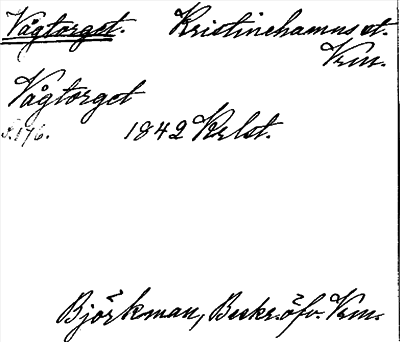 Vågtorget. Kristinehamns st.
Vrm.
Vågtorget
s. 176. 1842 Krlst.
Björkman, Beskr. öfv. Vrm.